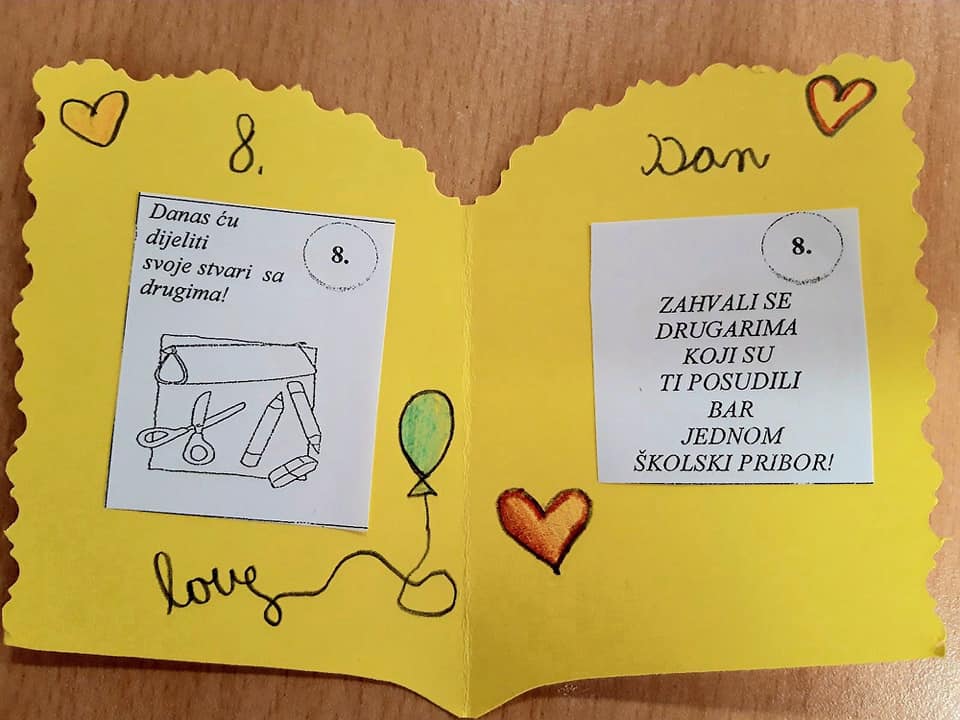 8.
Danas ću
dijeliti
svoje stvari sa
drugima!
8.
love
Dan
8.
ZAHVALI SE
DRUGARIMA
KOJI SU
TI POSUDILI
BAR
JEDNOM
ŠKOLSKI PRIBOR!